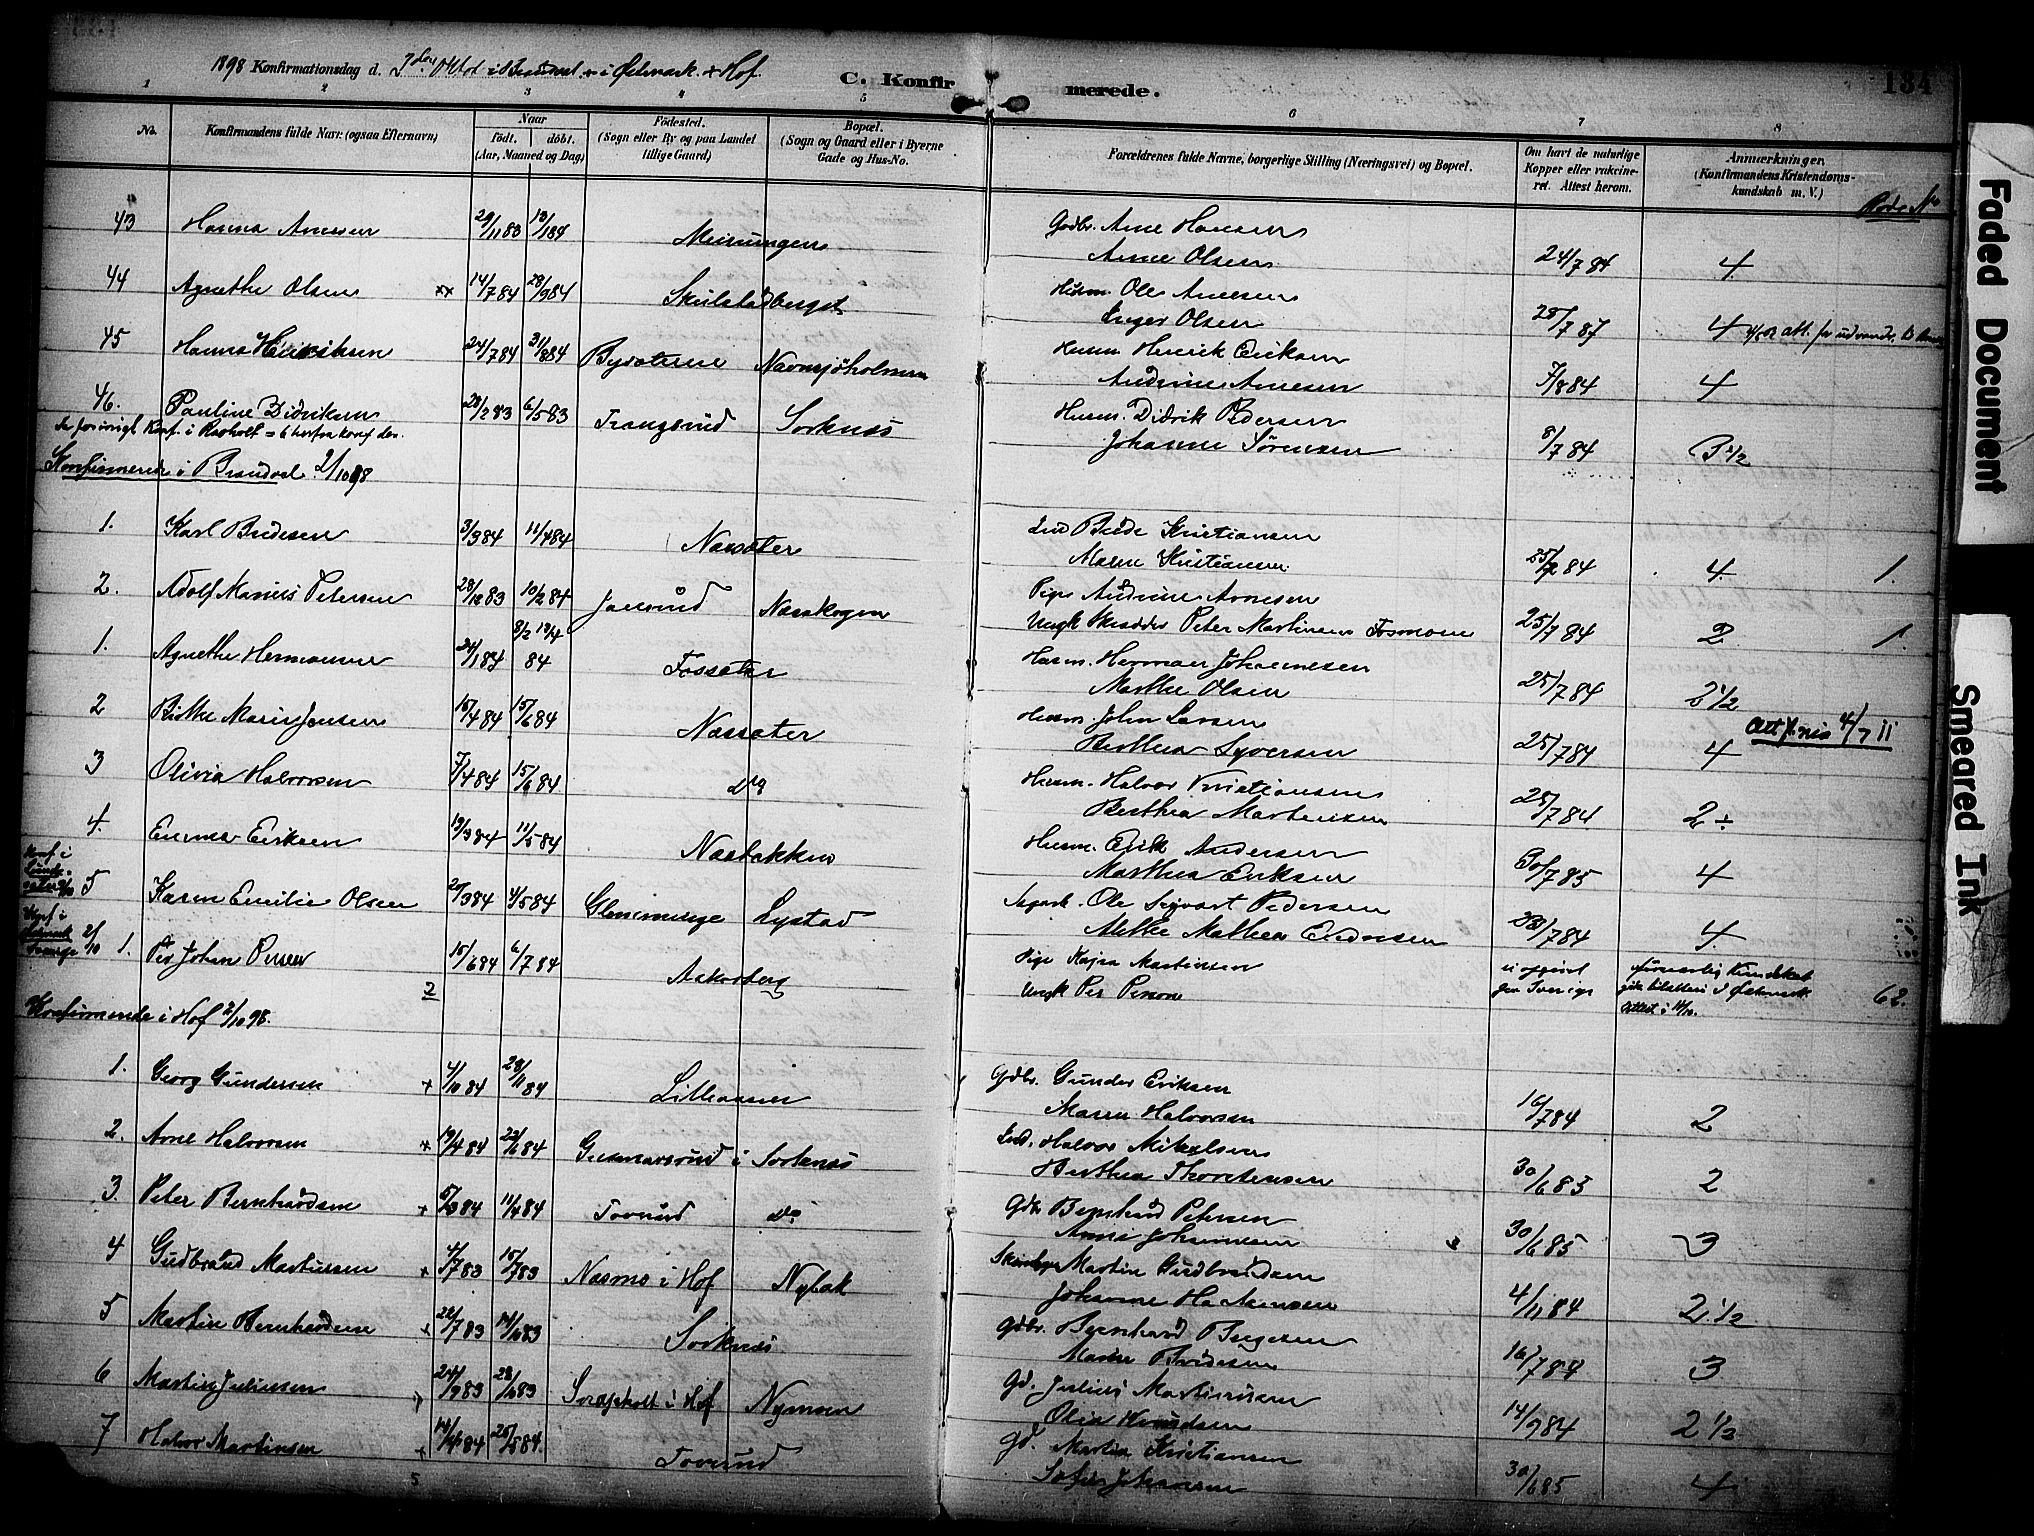 134
1898 Konfirmationsdag d. Oktob. i Brandval i Østmark + Hof.
C. Konfirmerede.
1 2 3 4 5 6 7 8
No.
Konfirmandens fulde Navn (ogsaa Efternavn)
Naar
födt. döbt.
(Aar, Maaned og Dag)
Födested.
(Sogn eller By og paa Landet
tillige Gaard)
Bopæl.
(Sogn og Gaard eller i Byerne
Gade og Hus-No.
Forældrenes fulde Navne, borgerlige Stilling (Næringsvei) og Bopæl.
Om havt de naturlige
Kopper eller vakcine-
ret. Attest herom.
Anmærkninger.
(Konfirmandens Kristendoms-
kundskab m. V.)
43 Hanna Arnesen 29/11 83 13/1 84 Gdbr. Arne Hansen
Anne Olsen 24/7 84 4
44 Agnethe Olsen xx 14/7 84 28/9 84 Skulstadberget Husm. Ole Arnesen
Inger Olsen 28/7 87 4
45 Hanna Henriksen 24/7 84 31/8 84 Bysæterne Navnsjøholmen Husm. Henrik Eriksen
Andrine Arnesen 7/8 84 4
46. Pauline Didriksen 28/2 83 6/5 83 Trangsrud Sorknes Husm. Didrik Pedersen
Johanne Sørensen 8/7 84 3 1/2
Konfirmerede i Brandval 2/10 98
1. Karl Bredesen 3/3 84 11/4 84 Næssæter Ind Brede Kristiansen
Maren Kristiansen 25/7 84 4. 1.
2. Adolf Marius Petersen 28/12 83 10/2 84 Jansrud Næsskogen Pige Andrine Arnesen
Ungk Skrædder Peter Martinsen 25/7 84 2 1.
1. Agnethe Hermansen 24/1 84 84 Fossæter Husm. Herman Johannesen
Marthe Olsen 25/7 84 2 1/2
2 Marie Jensen 15/4 84 15/6 84 Næssæter Husm. John Larsen
Berthea Syversen 25/7 84 4 4/7 11
3 Olivia Halvorsen 7/4 84 15/6 84 do Husm. Halvor Kristiansen
Berthea Martinsen 25/7 84 2÷
4. Emma Eriksen 19/3 84 11/5 84 Næsbakken Husm. Erik Andersen
Marthea Eriksen 30/7 85 4
Konf i
5 Karen Emilie Olsen 20/3 84 4/5 84 Lystad Ole Sigvart Pedersen
Mathea 23/7 84 4.
Konf i
Sverige 2/10 1. Per Johan Persen 15/6 84 6/7 84 Aakersberg Pige Kajsa Martinsen
Ungk Per Person fra Sverige 62.
Konfirmerede i Hof 2/10 98.
1. Georg Gundersen + 4/10 84 23/11 84 Lilleaasen Gdbr. Gunder Eriksen
Maren Halvorsen 16/7 84 2
2. Arne Halvorsen + 19/4 84 22/6 84 Gunnarsrud i Sorknes Ind. Halvor Mikelsen
Berthea Thorstensen 30/6 83 2
3. Peter Bernhardsen + 11/4 84 Toverud do Gdbr Bernhard Petersen
Anne Johannesen 30/6 85 3
4 Gudbrand Martinsen + 4/7 83 15/7 83 Næsmo i Hof Nybak Martin Gudbrandsen
Johanne 4/11 84 2 1/2
5 Martin Bernhardsen + 22/7 83 Sorknes Gdbr. Bernhard Bergesen
Maren Bredesen 16/7 84 3
6 Martin Juliussen 24/9 83 i Hof Nymoen Gd. Julius Martinsen
Olia 14/9 84 2 1/2
7 Halvor Martinsen + 14/4 84 25/5 84 Toverud Gd. Martin Kristiansen
Sofie Johansen 30/6 85 4
5
Faded Document
Smeared Ink